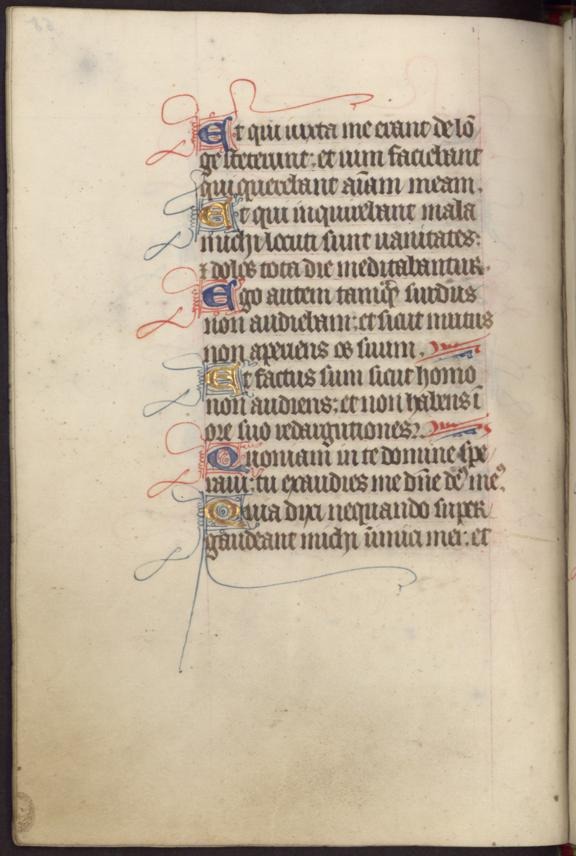 Et qui iuxta me erant de lō
ge steterunt: et uim faciebant
qui querebant aīam meam.
Et qui inquirebant mala
michi locuti sunt uanitates:
⁊ dolos tota die meditabantur.
Ego autem tamq̄ surdus
non audiebam: et sicut mutus
non aperiens os suum.
Et factus sum sicut homo
non audiens: et non habens ī
ore suo redargutiones.
Quoniam in te domine spe
raui: tu exaudies me dn̄e deꝰ meꝰ.
Quia dixi nequando super
gaudeant michi inimici mei: et